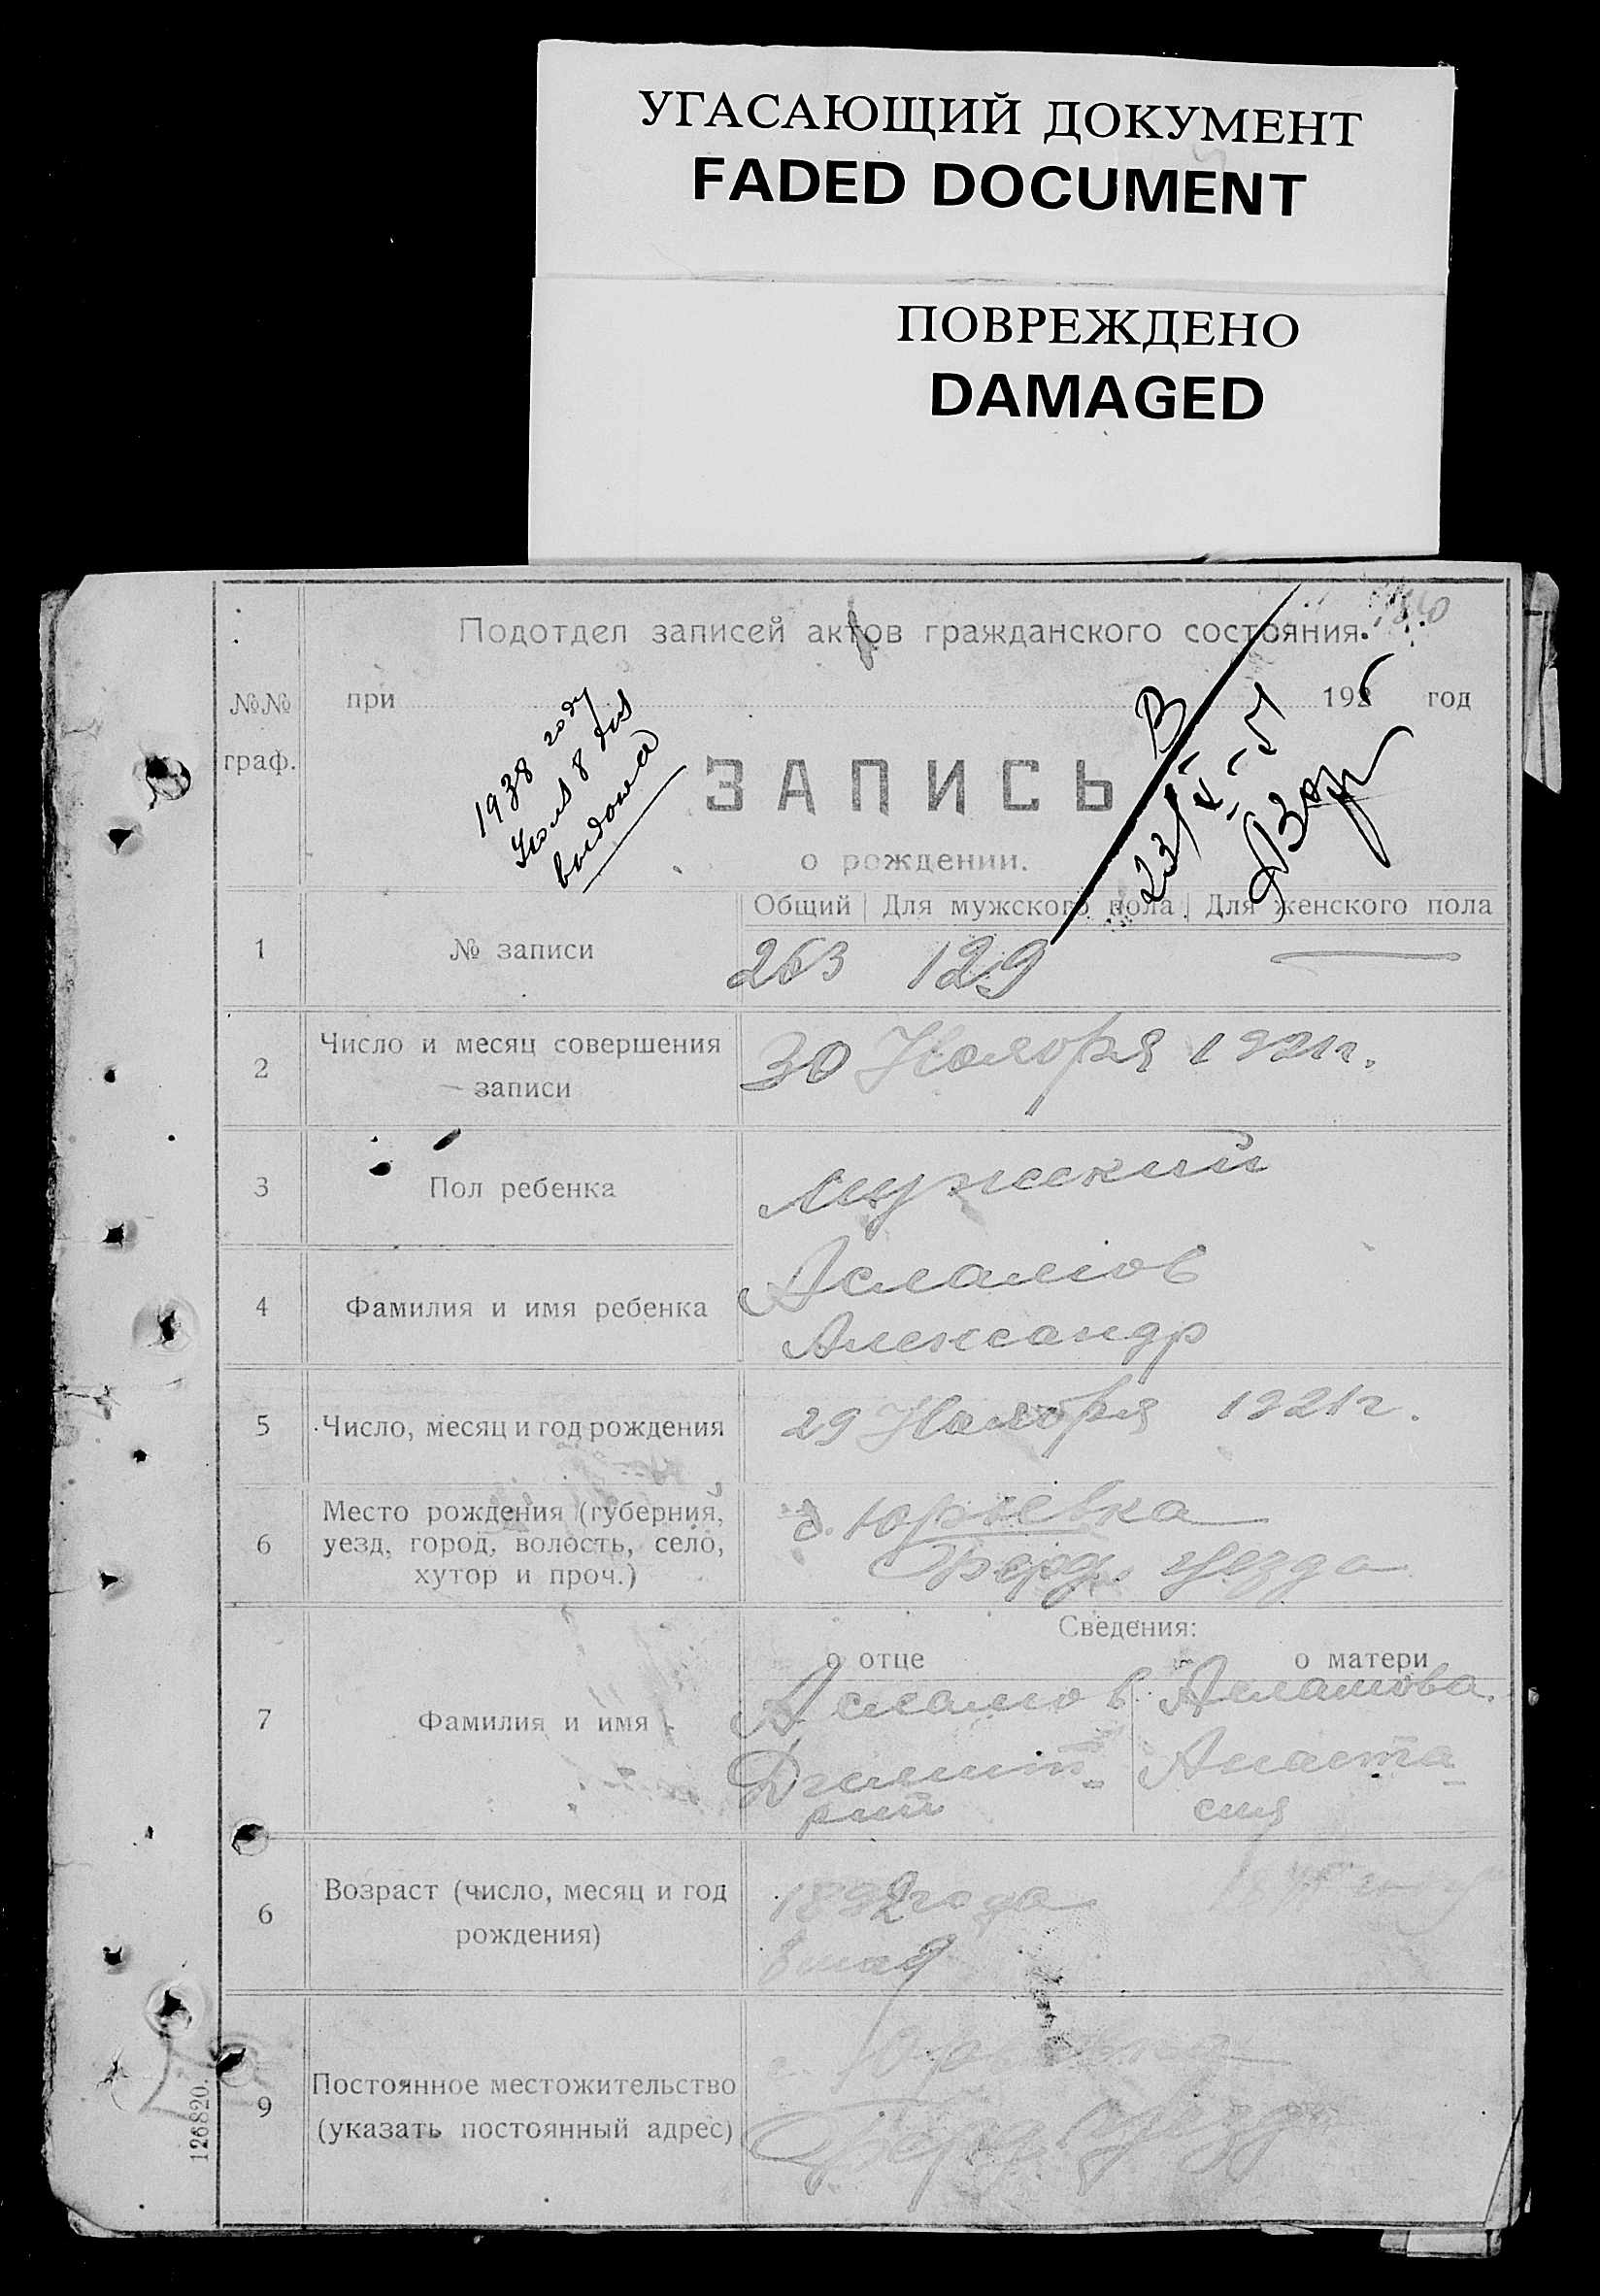 УГАСАЮЩИЙ ДОКУМЕНТ
FADED DOCUMENT
ПОВРЕЖДЕНО
DAMAGED
Подотдел записей актов гражданского состояния.
№№ граф.
при 192 год
1938 году
Июля 8 дня
выдона
В
23/V-51
ЗАПИСЬ
о рождении.
Общий Для мужского пола Для женского пола
1 № записи 263 129 —
2 Число и месяц совершения записи 30 Ноября 1921г.
3 Пол ребенка Мужский
4 Фамилия и имя ребенка Асламов
Александр
5 Число, месяц и год рождения 29 Ноября 1921г.
6 Место рождения (губерния, д. Юрьевка
уезд, город, волость, село, Берд. уезда
хутор и проч.)
Сведения:
о отце о матери
7 Фамилия и имя Асламов Асламова
Дмит- Анаста-
рий сия
6 Возраст (число, месяц и год 1892 года
рождения)
9 Постоянное местожительство Юрьевка
(указать постоянный адрес) Берд. уезд
126820.